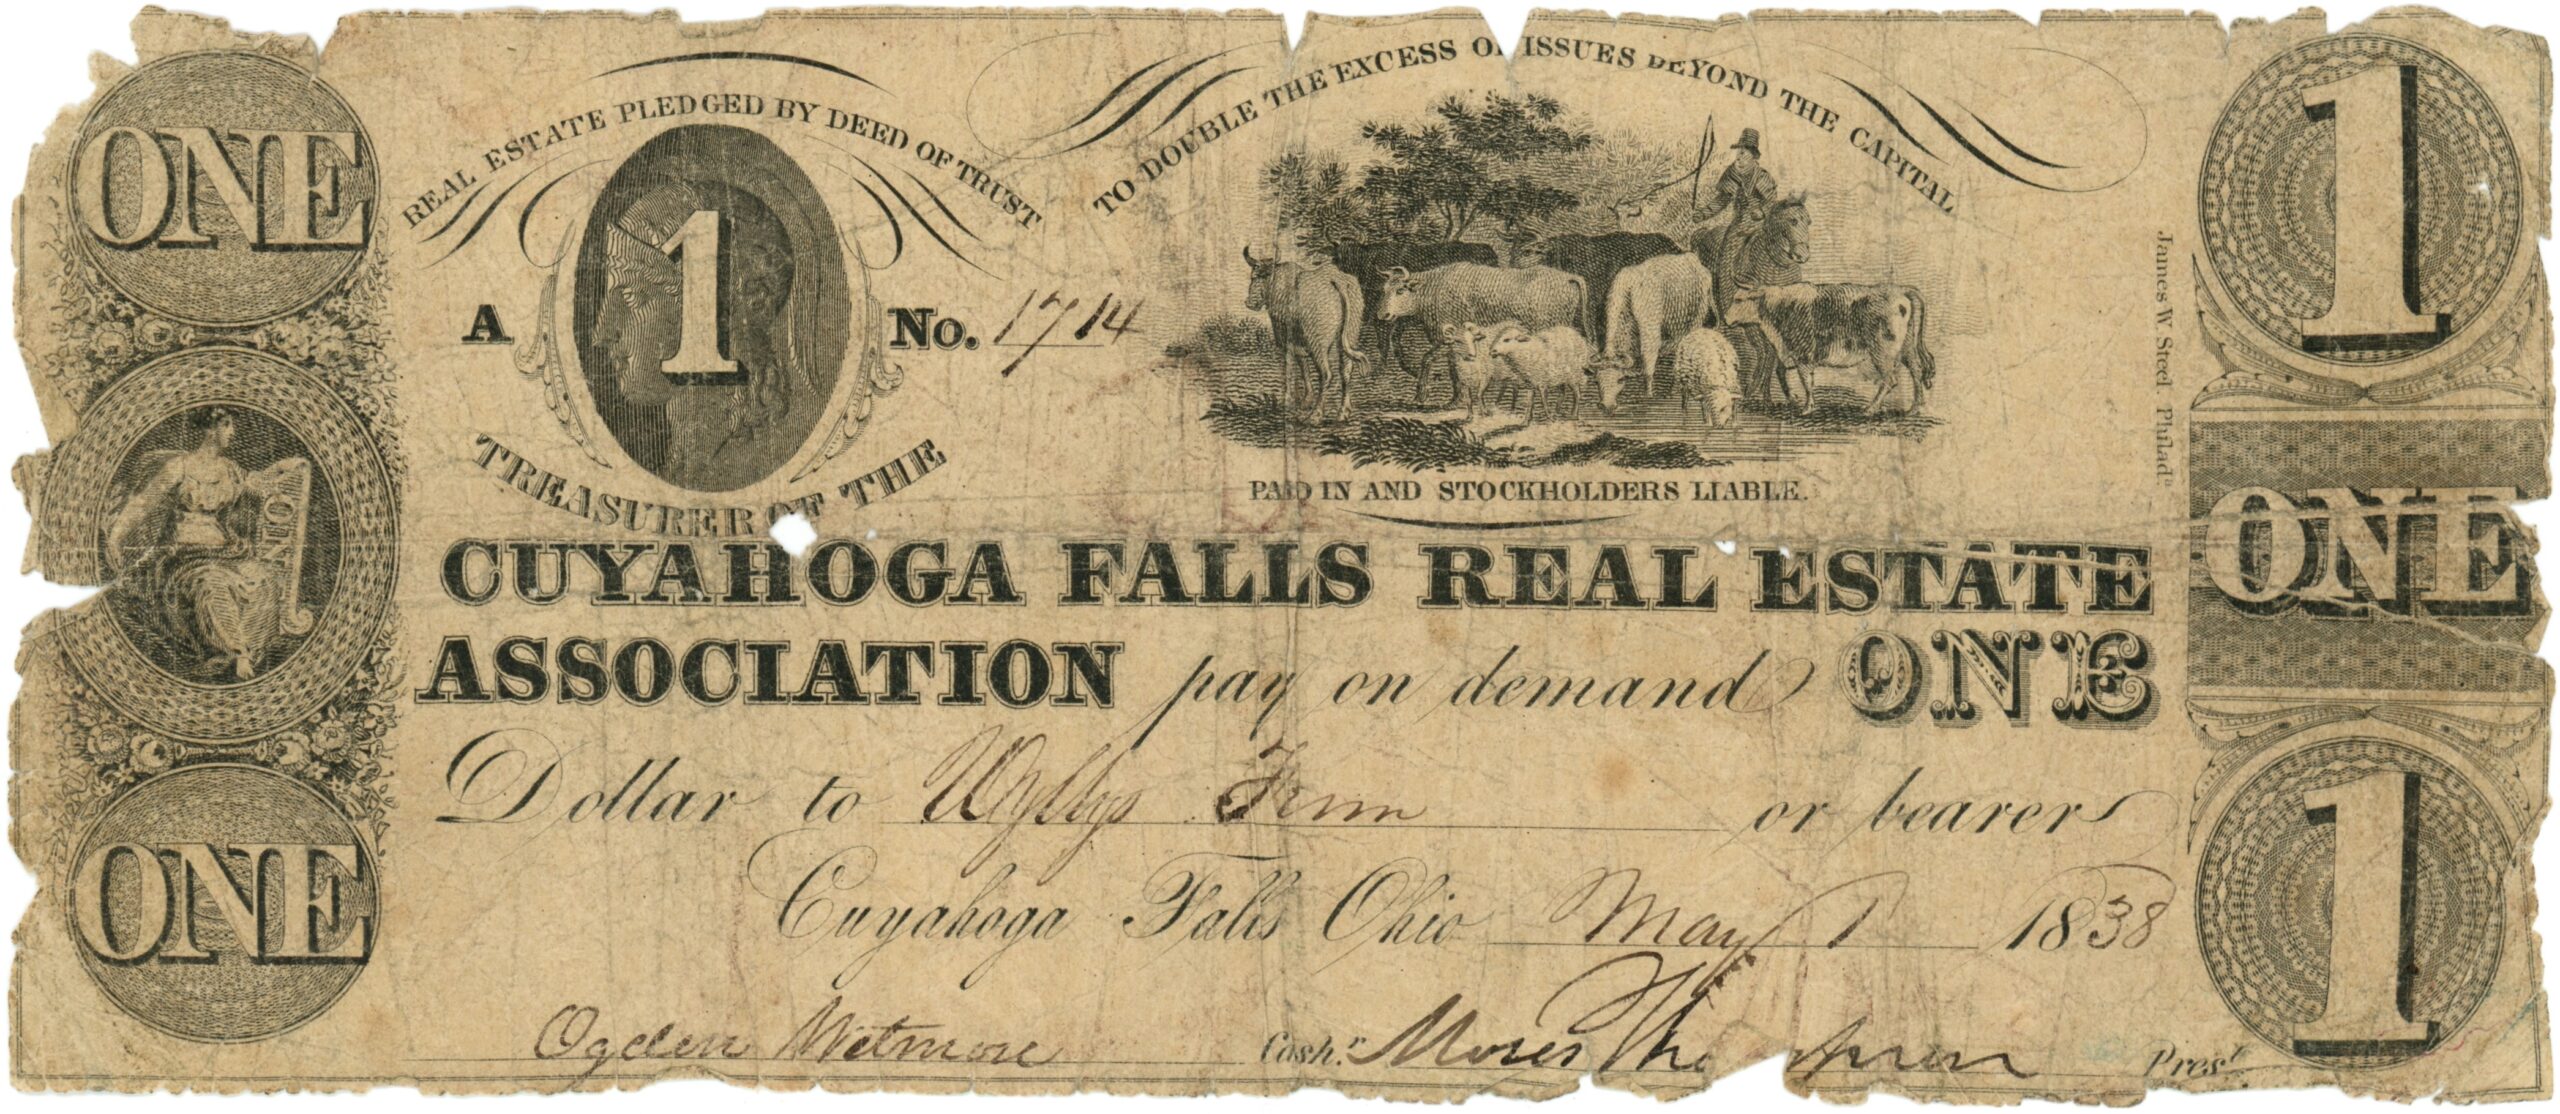 REAL ESTATE PLEDGED BY DEED OF TRUST
TO DOUBLE THE EXCESS OF ISSUES BEYOND THE CAPITAL
PAID IN AND STOCKHOLDERS LIABLE.
ONE
1
1
A No. 1714
James W. Steel. Philadᵃ
TREASURER OF THE
CUYAHOGA FALLS REAL ESTATE
ONE
OHIO
ONE
ASSOCIATION pay on demand ONE
Dollar to Wyllys or bearer
Cuyahoga Falls Ohio May 1 1838
ONE
1
Ogden Wetmore Cash.ʳ Moses Presᵗ